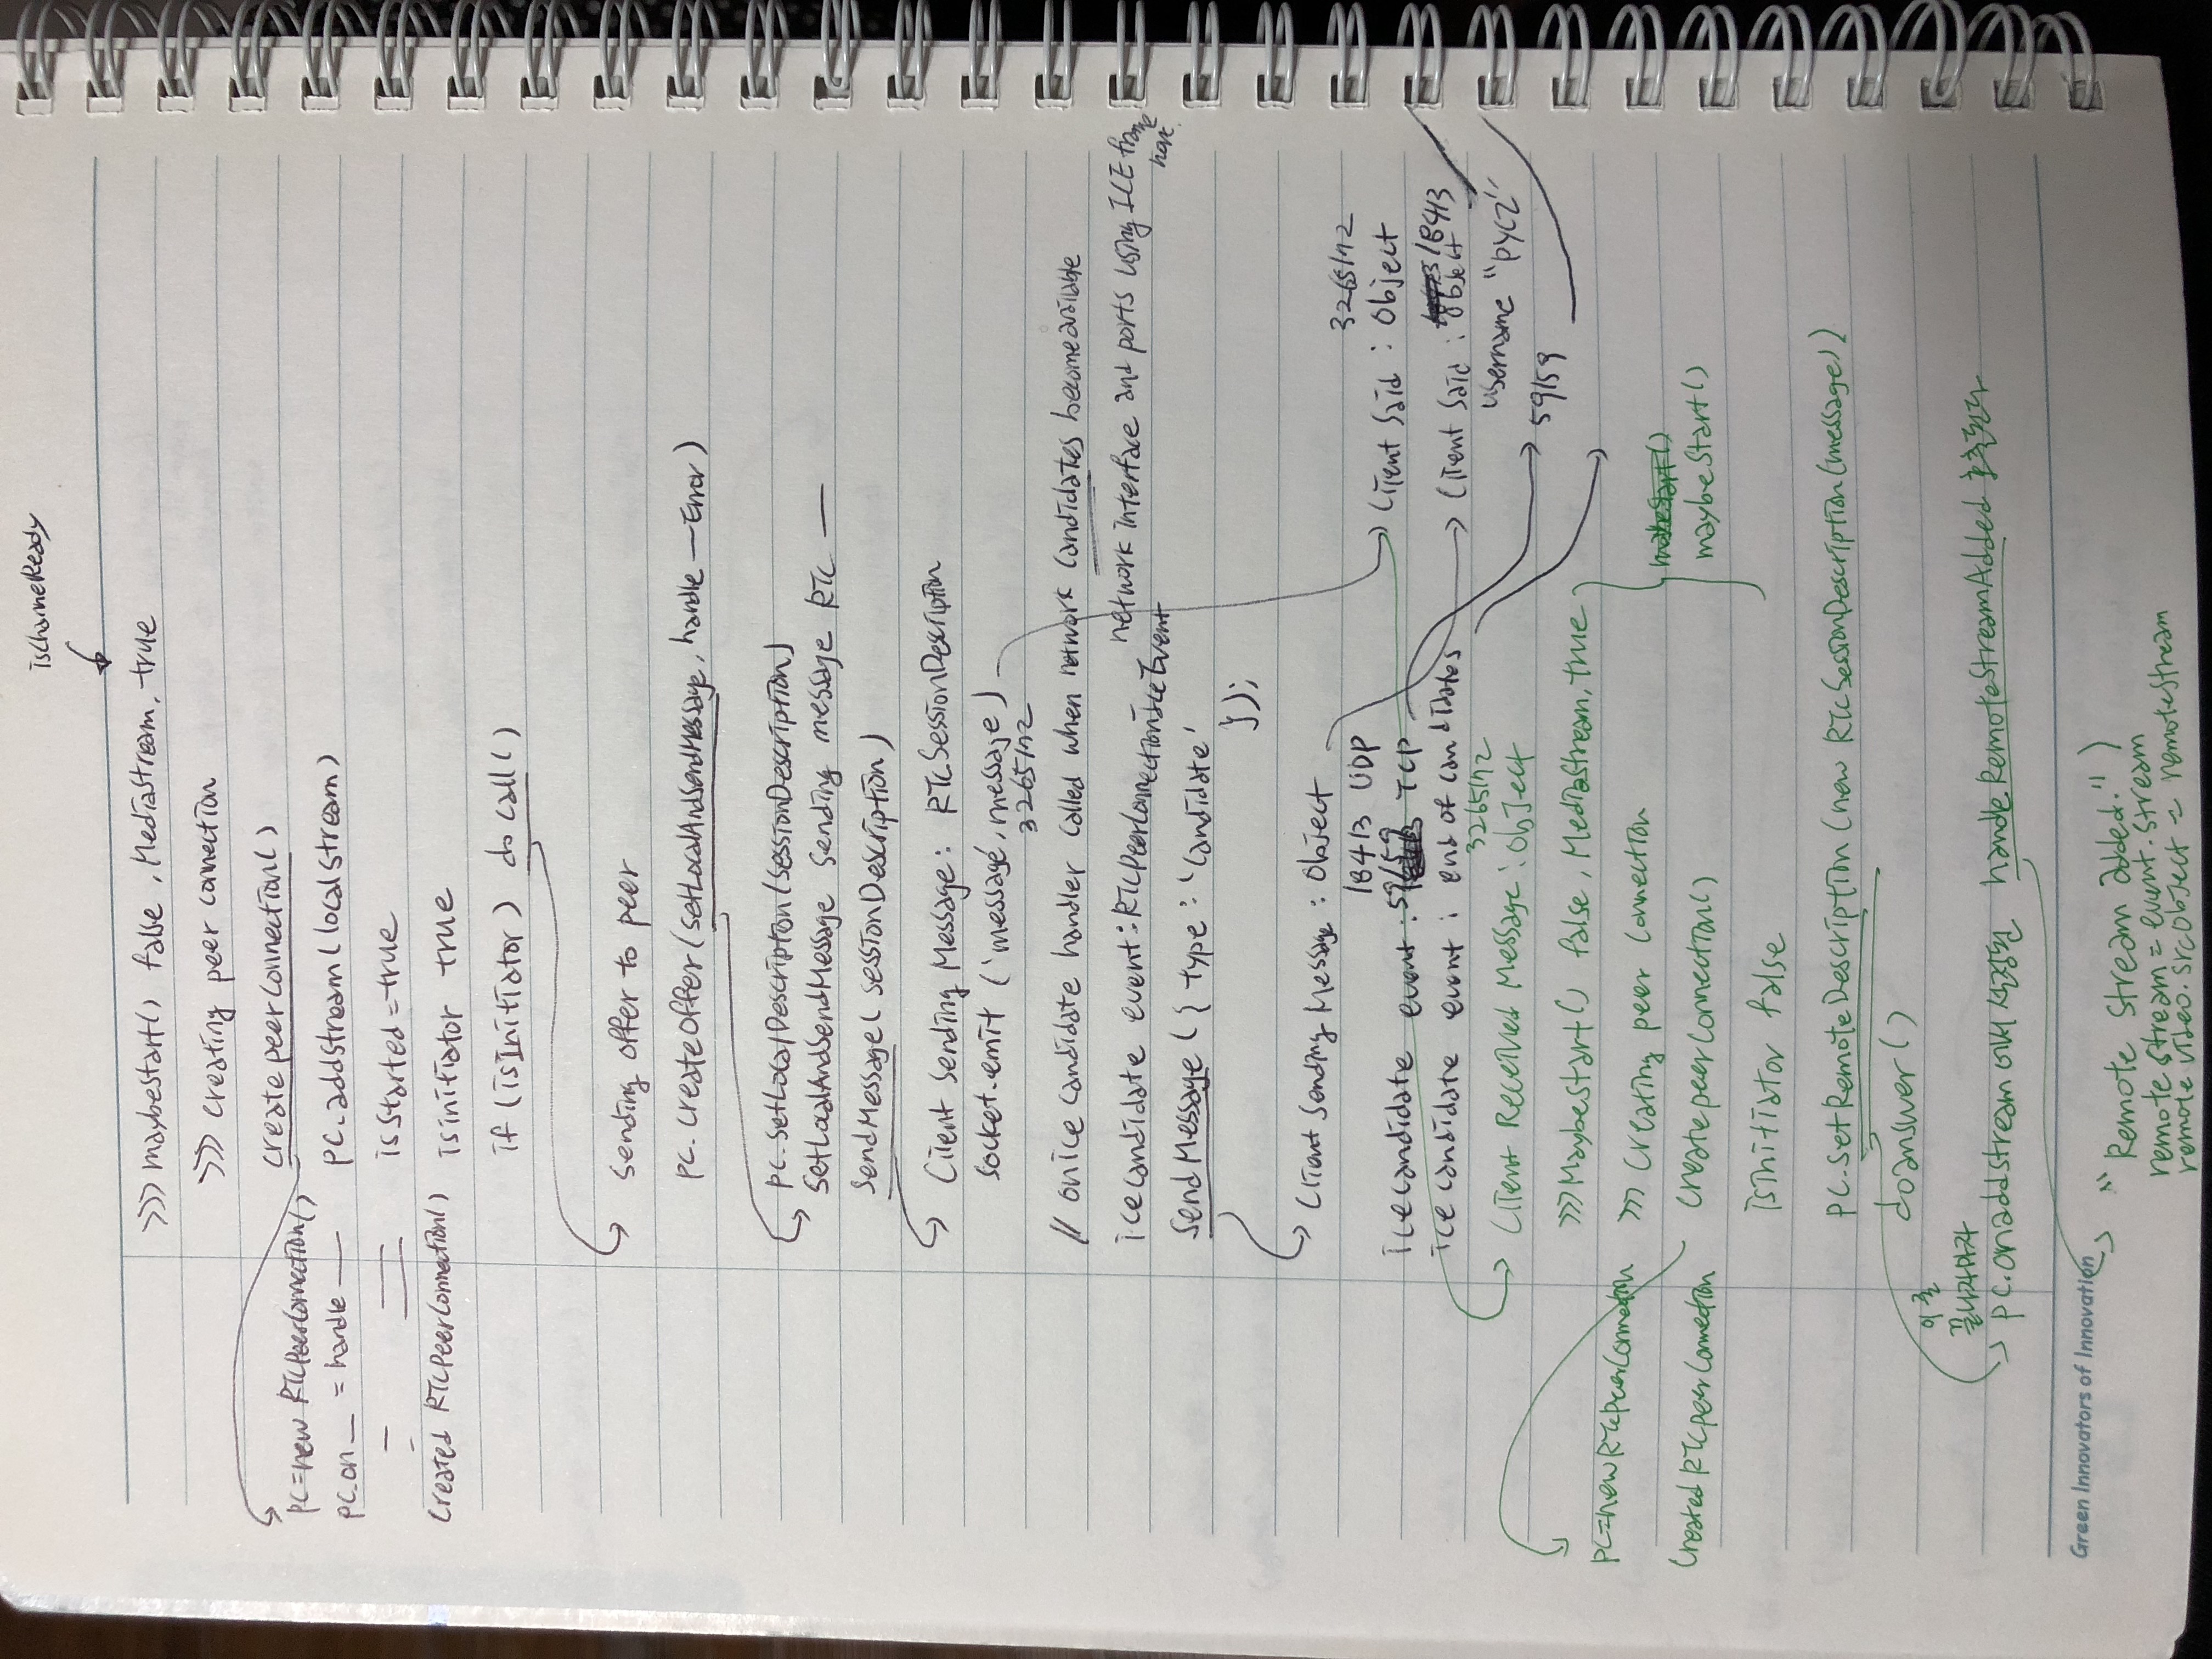 isChanneReady
>>> maybeStart() false, MediaStream, true
>>> creating peer connection
createpeerConnection()
pc=new RTCPeerConnection()
pc.addStream(localStream)
pc.on_ = handle —
isStarted=true
Created RTCPeerConnection()
isinitiator true
if (isInitiator) do call()
Sending offer to peer
pc. createOffer(setLocalAndSendMessage, handle — Error)
pc.setLocalDescription(sessionDescription)
setLocalAndSendMessage sending message RTC —
SendMessage( sessionDescription)
Client Sending Message: RTCSessionDescription
socket.emit ('message', message)
3265172
// onice candidate handler called when network candidates become available
network interface and ports using ICE frame
icecandidate event: RTCPeerConnectionIceEvent
SendMessage ({ type: 'candidate'
});
Client Sending Message: Object
18413 UDP
3265172
Client Said: Object
icecandidate event: 59159 TCP
18413
icecandidate event: end of candidates
Client Said: Object
3265172
username "pycz"
Client Received Message: Object
59159
>>> MaybeStart() false, MediaStream, true
pc=new RTCpeerConnection
>>> Creating peer connection
maybeStart()
Created RTCpeerConnection
CreatepeerConnection()
maybeStart()
isinitiator false
pc.setRemoteDescription(new RTCSessionDescription(message))
doanswer()
이 줄
끝나자마자
pc.onaddstream에서 설정된 handleRemoteStreamAdded 호출된다
Green Innovators of Innovation
"Remote stream added.")
remote stream = event.stream
remote video.srcObject = remotestream